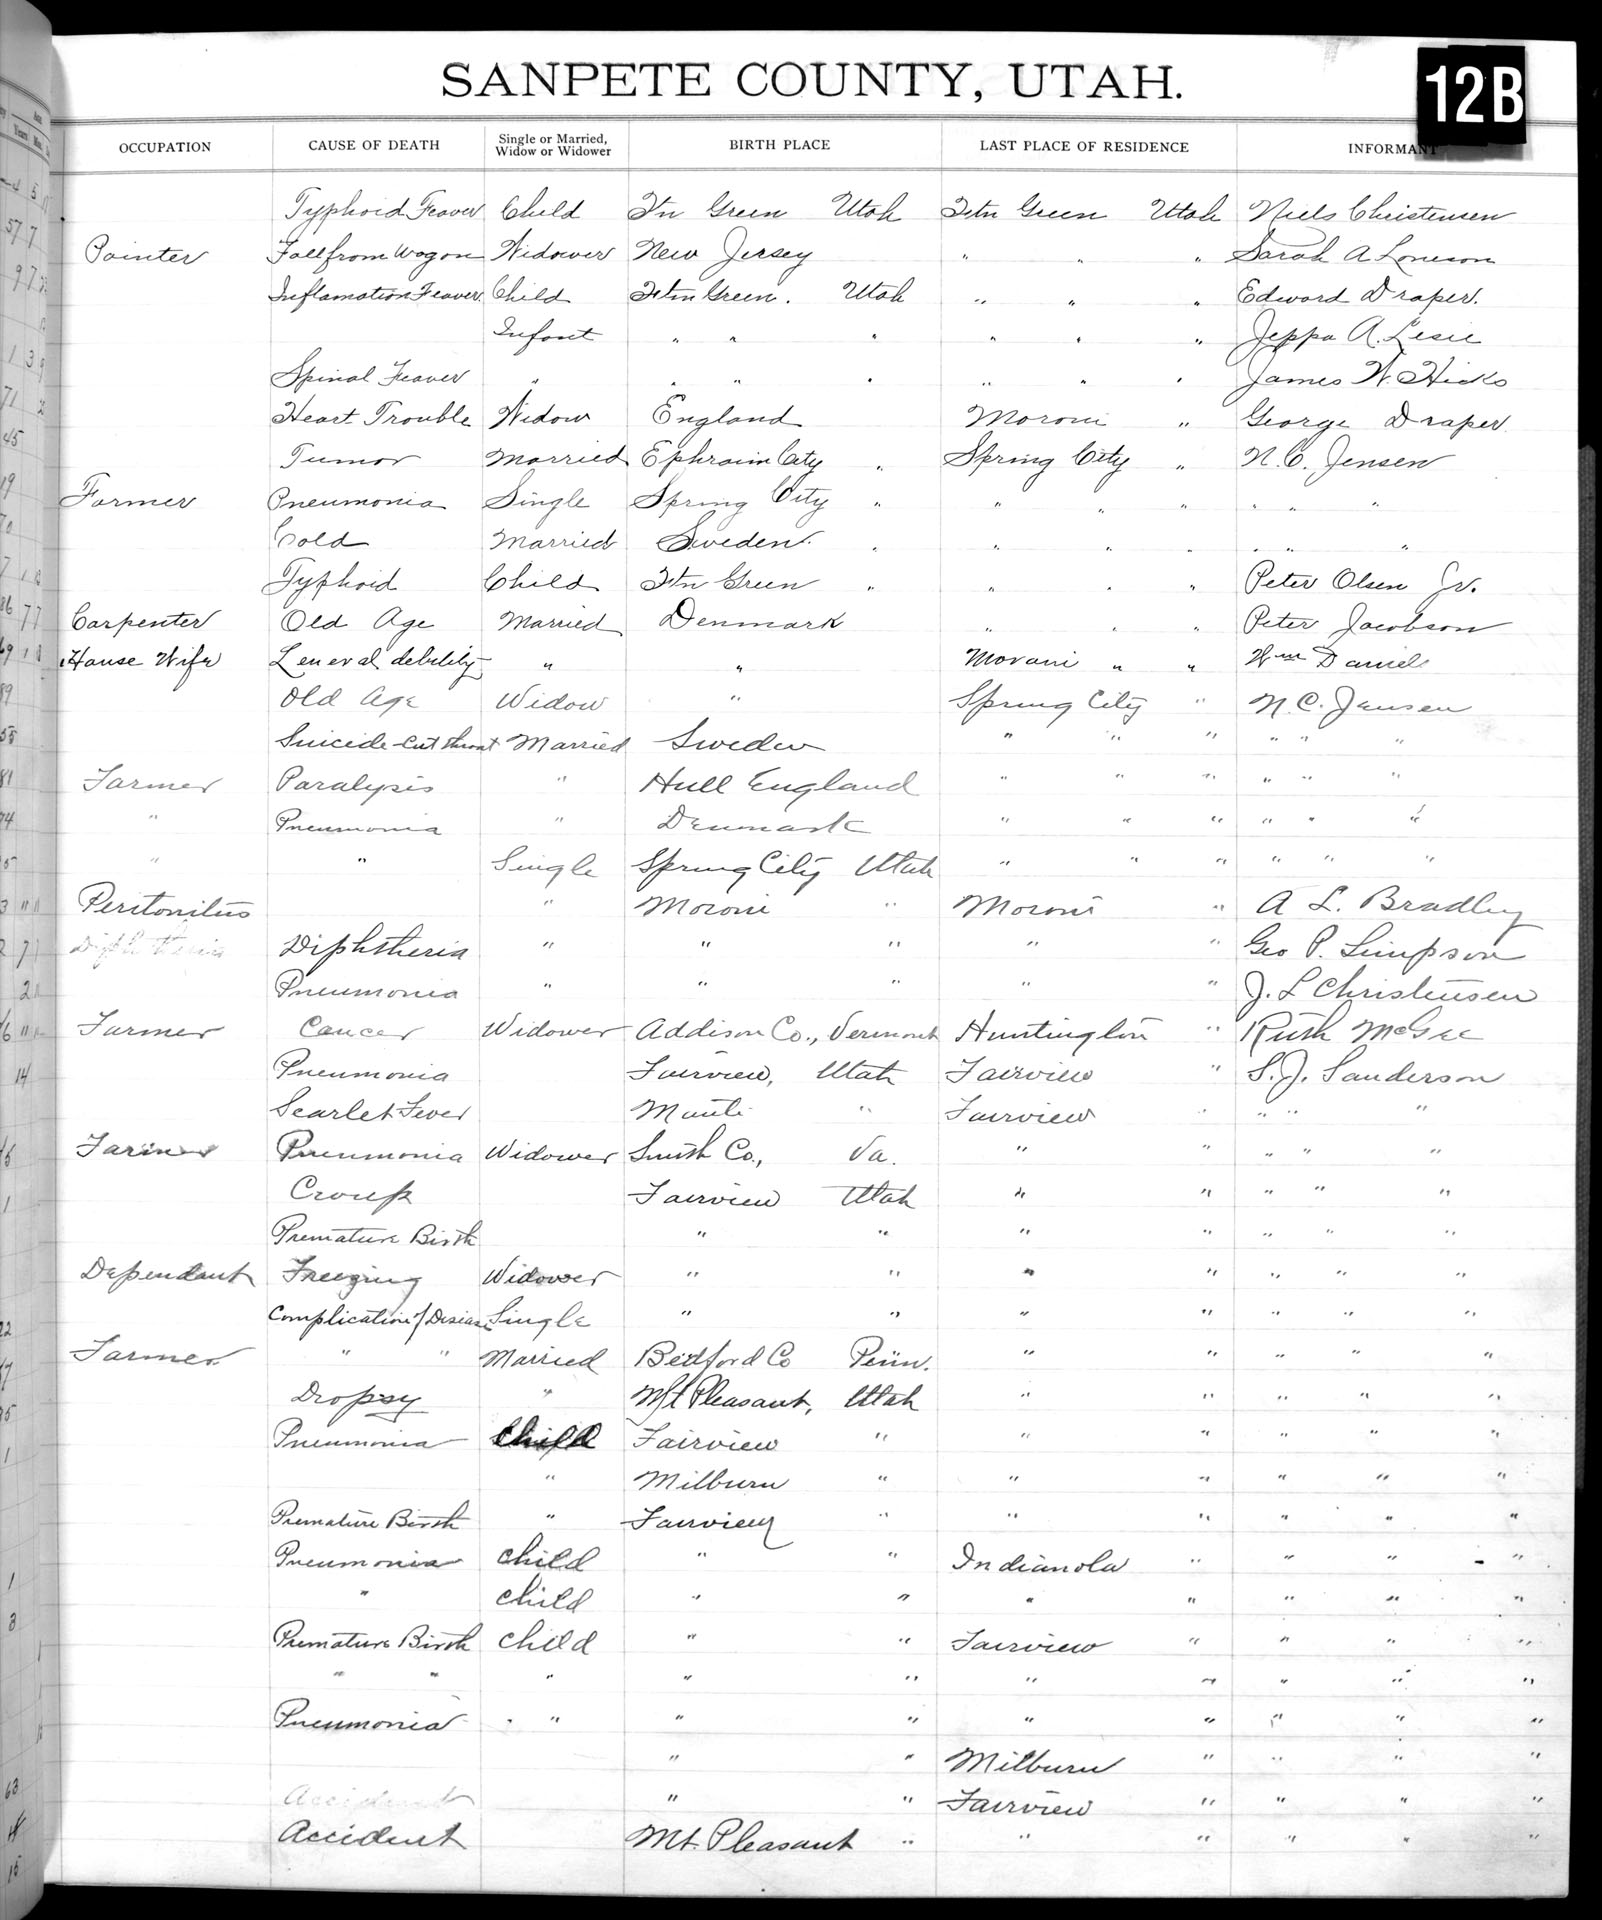 SANPETE COUNTY, UTAH.
12B
OCCUPATION CAUSE OF DEATH Single or Married, Widow or Widower BIRTH PLACE LAST PLACE OF RESIDENCE INFORMANT
Typhoid Feaver Child Ftn Green Utah Ftn Green Utah Niels Christensen
Painter Fall from Wagon Widower New Jersey " " " Sarah A
Inflamation Feaver Child Ftn Green. Utah " " " Edward Draper.
Infant " " " " " " Jeppa A.
Spinal Feaver " " " " " " " James W. Hicks
Heart Trouble Widow England Moroni " George Draper
Tumor Married Ephraim City " Spring City " N. C. Jensen
Farmer Pneumonia Single Spring City " " " " " " "
Cold Married Sweden " " " " " " "
Typhoid Child Ftn Green " " " " Peter Olsen Jr.
Carpenter Old Age Married Denmark " " " Peter Jacobson
House Wife General debility " " Moroni " " Wm Daniels
Old Age Widow " Spring City " N. C. Jensen
Suicide-Cut throat Married Sweden " " " " " "
Farmer Paralysis " Hull England " " " " " "
" Pneumonia " Denmark " " " " " "
" " Single Spring City Utah " " " " " "
Peritonitus " Moroni " Moroni " A L. Bradley
Diphtheria Diphtheria " " " " " Geo P. Simpson
Pneumonia " " " " " J. L Christensen
Farmer Cancer Widower Addison Co., Vermont Huntington " Ruth McGee
Pneumonia Fairview, Utah Fairview " S. J. Sanderson
Scarlet Fever Manti " Fairview " " " "
Farmer Pneumonia Widower Smith Co., Va. " " " " "
Croup Fairview Utah " " " " "
Premature Birth " " " " " " "
Dependant Freezing Widower " " " " " " "
Complication of Disease Single " " " " " " "
Farmer " " Married Bedford Co Penn. " " " " "
Dropsy " Mt Pleasant, Utah " " " " "
Pneumonia Child Fairview " " " " " "
" Milburn " " " " " "
Premature Birth " Fairview " " " " " "
Pneumonia Child " " Indianola " " " "
" Child " " " " " " "
Premature Birth Child " " Fairview " " " "
" " " " " " " " " "
Pneumonia " " " " " " " "
" " Milburn " " " "
Accident " " Fairview " " " "
Accident Mt. Pleasant " " " " " "